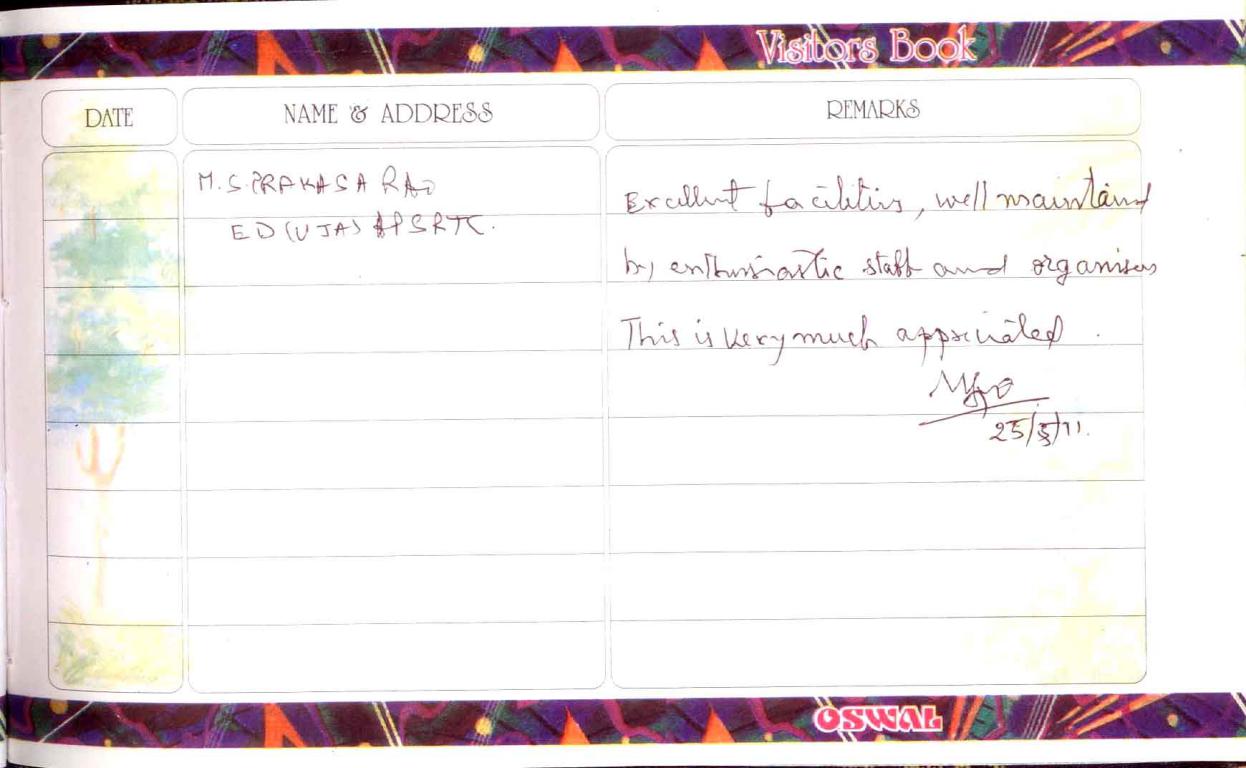 Visitors Book
DATE
NAME & ADDRESS
REMARKS
M. S. PRAKASA RAO
ED (VJA) APSRTC.
Excellent facilities, well maintained
by enthusiastic staff and organisers
This is very much appreciated.
25/5/11.
OSWAL